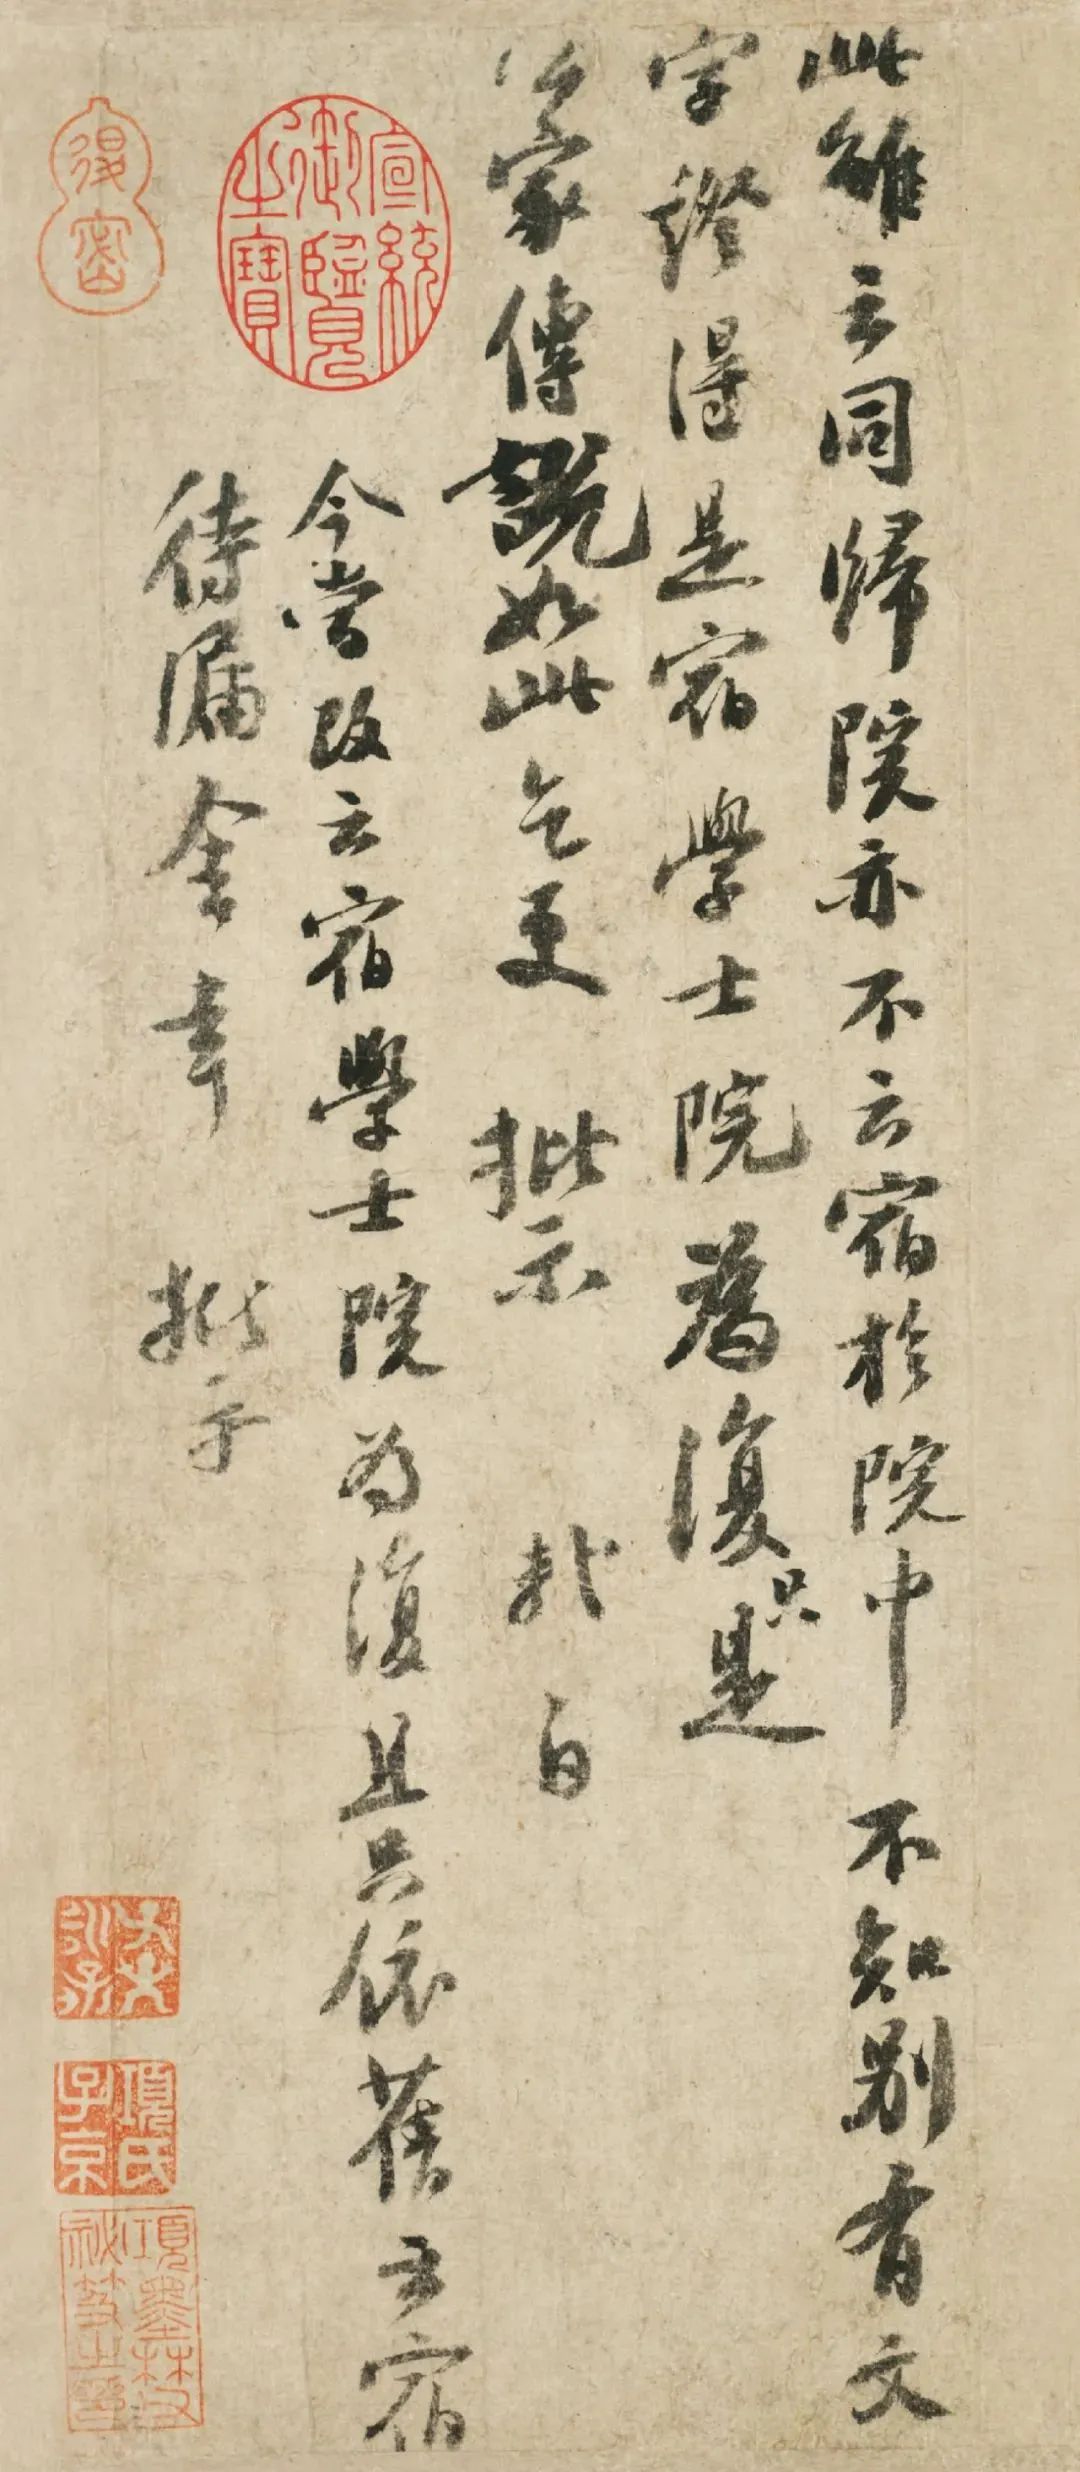 此雖云同歸院亦不云宿於院中不知別有文
字證得是宿學士院為復只是
蒙傳說如此乞更批示
白
今當改云宿學士院為復且只依舊云宿
待漏舍幸批示
宣統
御覽
之寶
項氏
子京
項墨林
祕笈之印